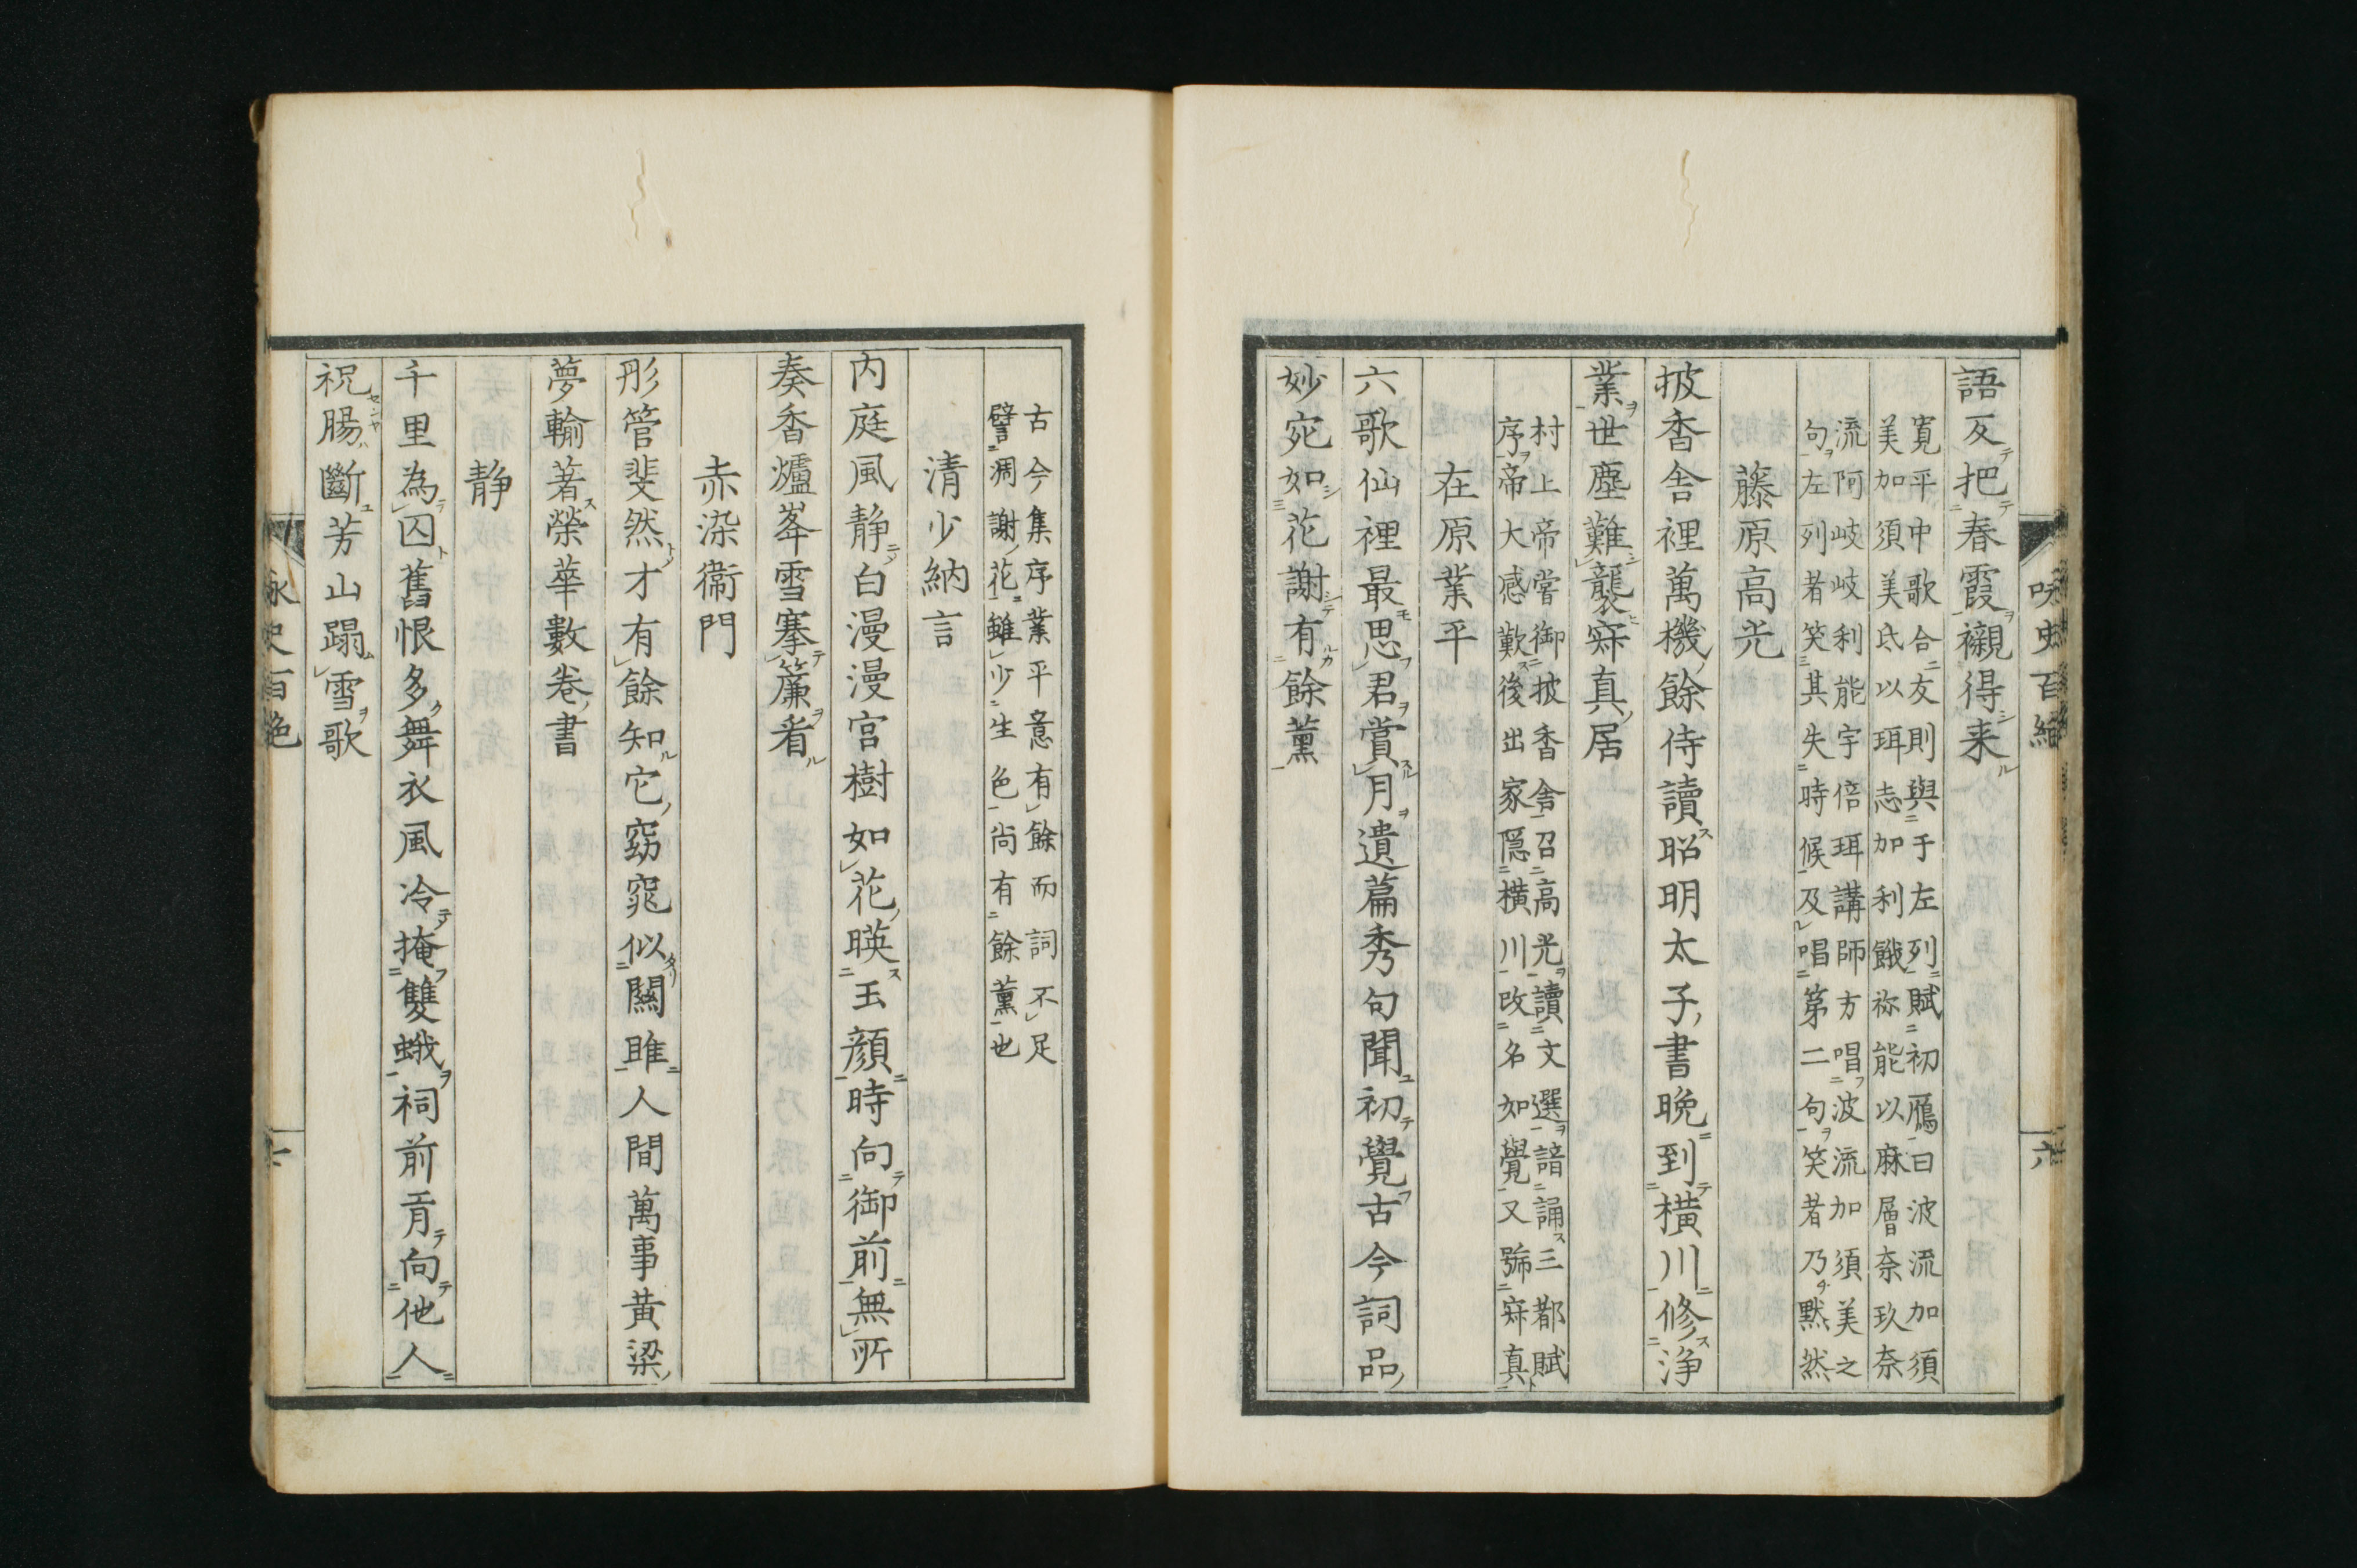 咏史百絕
六
語反把春霞襯得来
寛平中歌合友則與于左列賦初鴈曰波流加須
美加須美氐以珥志加利餓祢能以麻層奈玖奈
流阿岐岐利能宇倍珥講師方唱波流加須美之
句左列者笑其失時候及唱第二句笑者乃默然
藤原高光
披香舎裡萬機餘侍讀昭明太子書晩到横川修浄
業世塵難襲寂真居
村上帝嘗御披香舎召高光讀文選諳誦三都賦
序帝大感歎後出家隠横川改名如覺又號寂真
在原業平
六歌仙裡最思君賞月遺篇秀句聞初覺古今詞品
妙宛如花謝有餘薫
古今集序業平意有餘而詞不足
譬凋謝花雖少生色尚有餘薫也
清少納言
内庭風静白漫漫宮樹如花暎玉顔時向御前無所
奏香爐峯雪搴簾看
赤染衞門
彤管斐然才有餘知它窈窕似關雎人間萬事黄梁
夢輸著榮華數巻書
静
千里為囚舊恨多舞衣風冷掩雙蛾祠前肯向他人
祝腸斷芳山蹋雪歌
咏史百絕